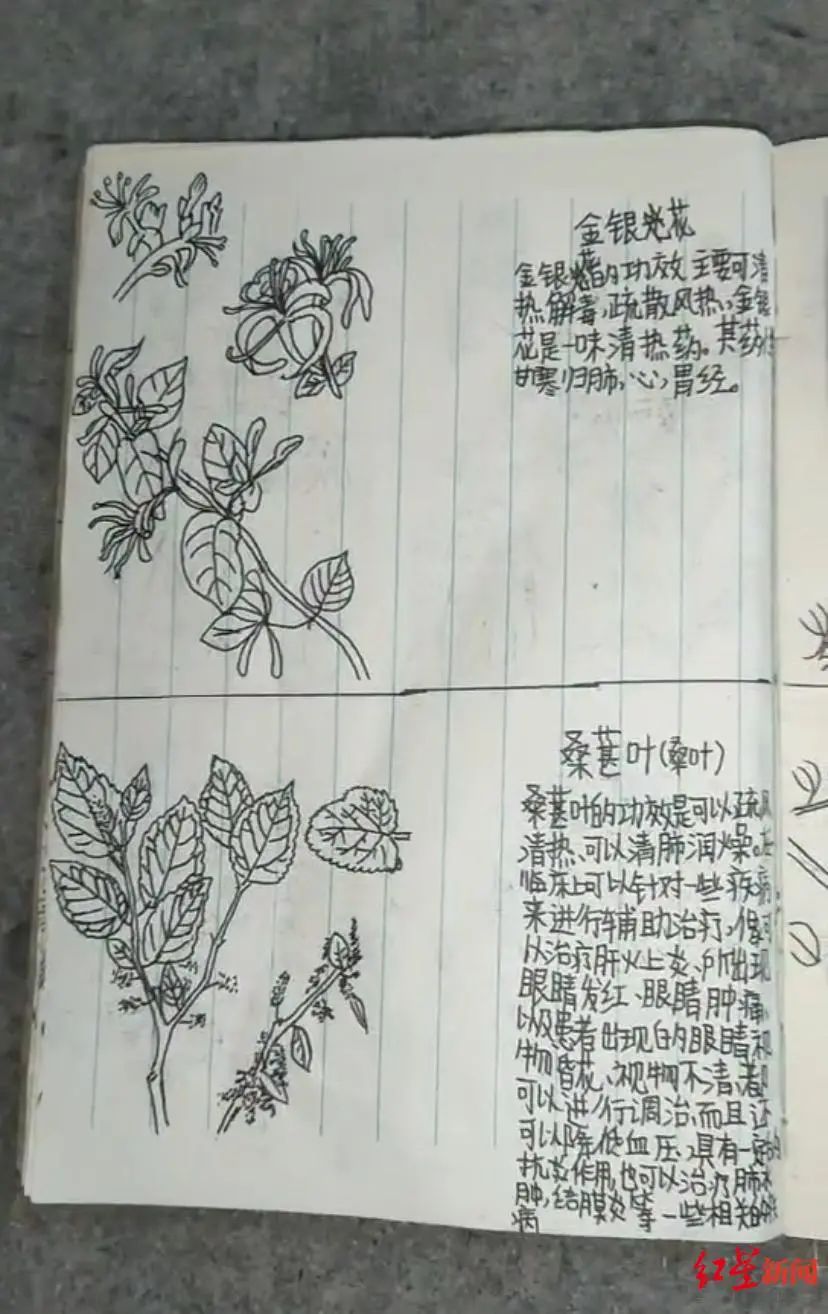 金银花
金银花的功效主要可清
热解毒,疏散风热,金银
花是一味清热药。其药性
甘寒归肺,心,胃经。
桑葚叶(桑叶)
桑葚叶的功效是可以疏风
清热、可以清肺润燥。在
临床上可以针对一些疾病
来进行辅助治疗,像可
以治疗肝火上炎、所出现
眼睛发红、眼睛肿痛、
以及患者出现的眼睛视
物昏花、视物不清、都
可以进行调治,而且还
可以降低血压、具有一定的
抗炎作用,也可以治疗肺水
肿,结膜炎等一些相关的
病
红星新闻